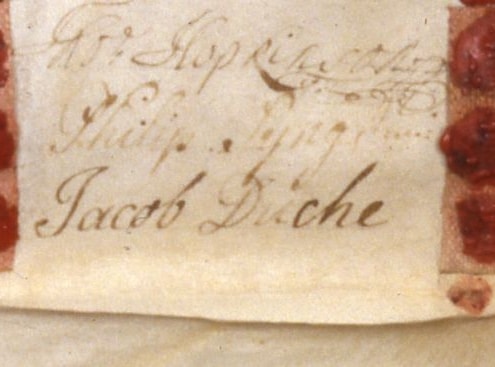 Thos Hopkinson
Philip Syng Junr
Jacob Duche